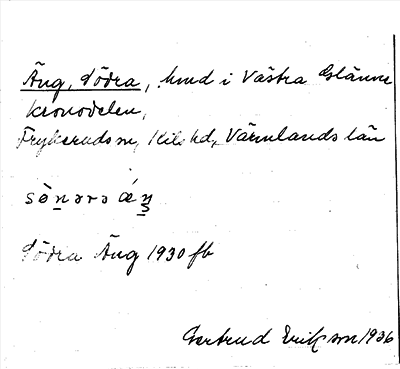 Äng, Södra, hmd i Västra Glänne
kronodelen,
Frykeruds sn, Kils hd, Värmlands län
sö̀nərə ǽŋ
Södra Äng 1930 fb
Gertrud Eriksson 1936